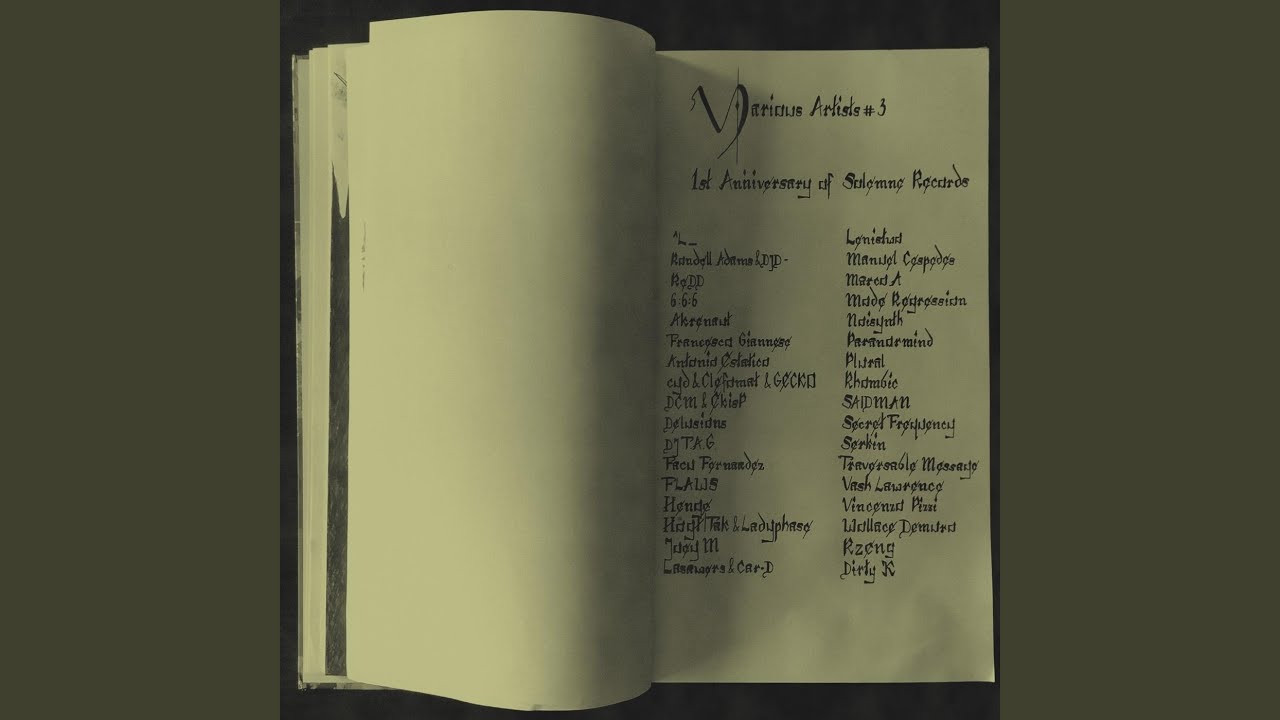 Various Artists #3
1st Anniversary of Solemne Records
^L_
Randell Adams & DJD-
ReDD
6:6:6
Akronaut
Francesco Giannese
Antonio Estatico
cyd & Clefomat & GECKO
DCM & Ekisp
Delusions
DJ T.A.G.
Facu Fernandez
FLAWS
Henge
Høgt Tak & Ladyphase
Joey M
Lasawers & Car-D
Lenistwo
Manuel Cespedes
Marco A
Mode Regression
Noisynth
Paranormind
Plural
Rhombic
SAIDMAN
Secret Frequency
Serkin
Traversable Message
Vash Lawrence
Vincenzo Pizzi
Wallace Demuro
Rzeng
Dirty K